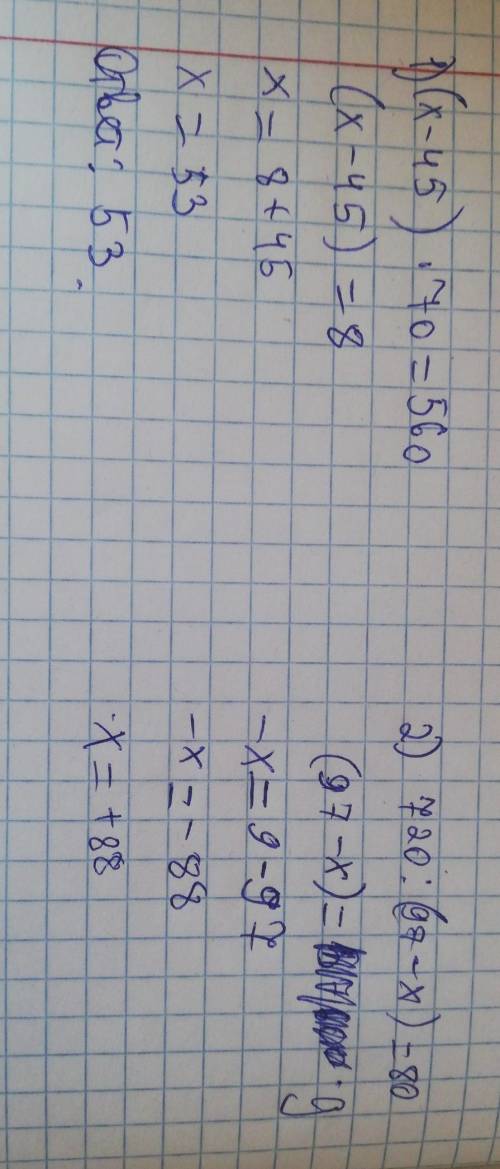 1) (x-45) · 70 = 560
(x-45) = 8
x = 8+45
x = 53
Ответ: 53.
2) 720 : (97-x) = 80
(97-x) = · 9
-x = 9-97
-x = -88
x = +88